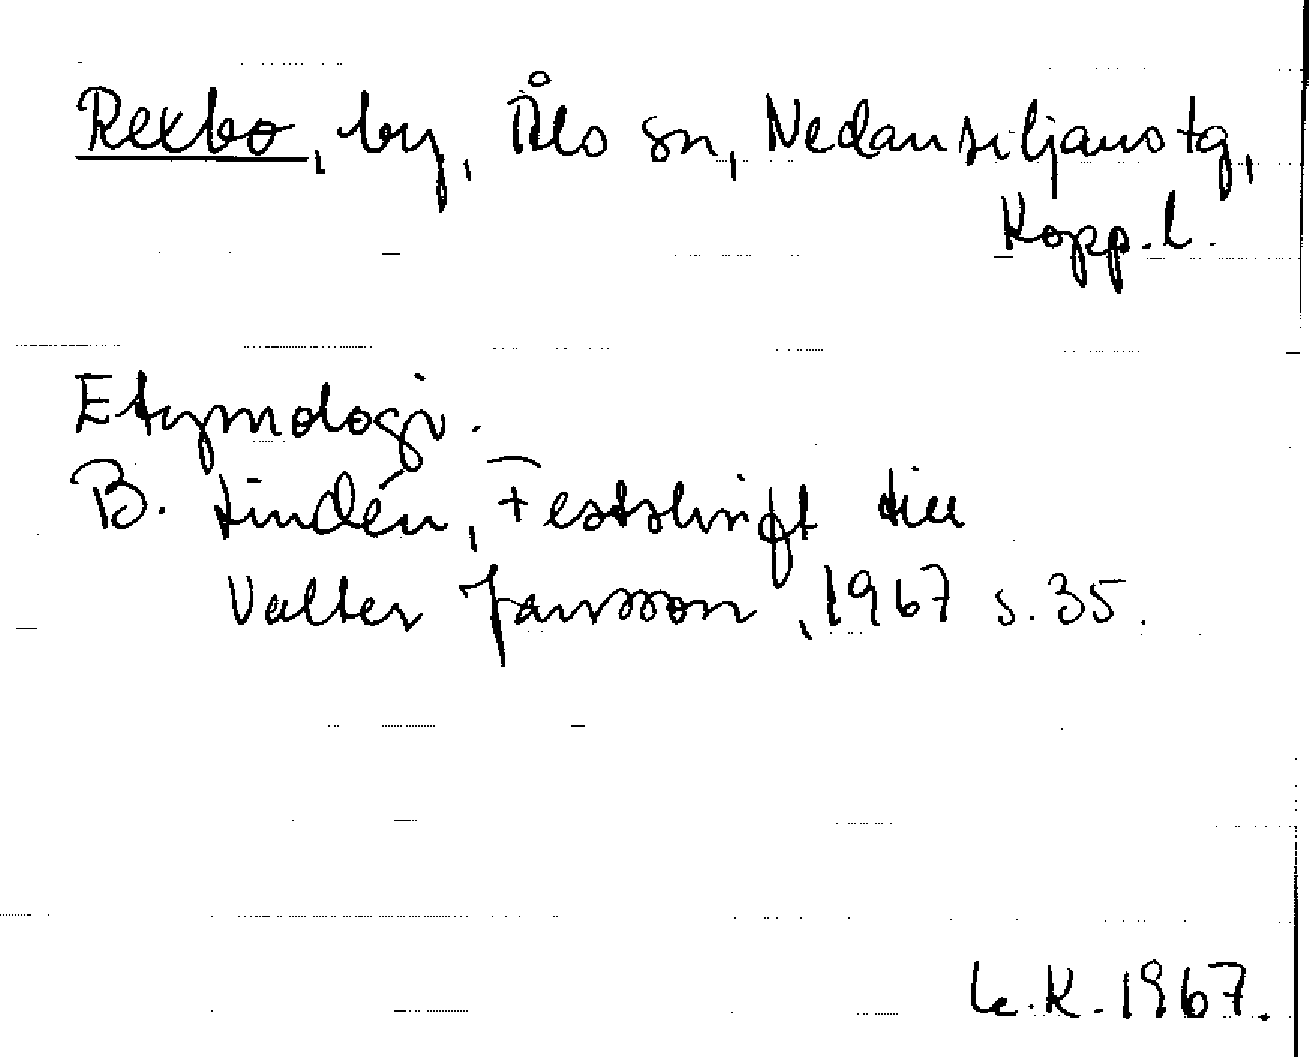 Rexbo, by, Åls sn, Nedansiljans tg,
Kopp. l.
Etymologi.
B. Lindén, Festskrift till
Valter Jansson, 1967 s. 35.
K. 1967.